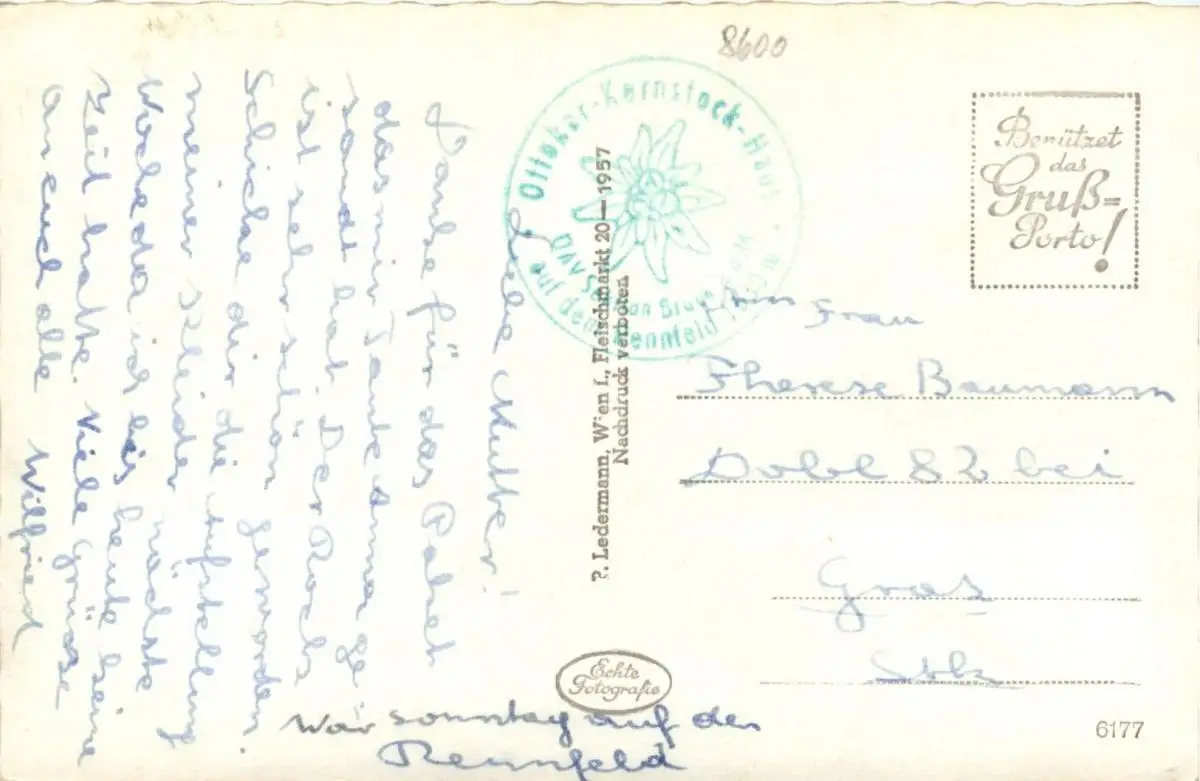 8600
Ottokar-Kernstock-Haus
ÖAV Sektion Bruck
auf dem Rennfeld
Benützet
das
Gruß=
Porto!
Liebe Mutter!
Danke für das Paket
das mir Tante Anna ge
sandt hat. Der Rock
ist sehr schön geworden.
Schicke dir die Aufstellung
meiner Kleider nächste
Woche da ich bis heute keine
Zeit hatte. Viele Grüsse
an euch alle Wilfried
War sonntag auf der
Rennfeld
P. Ledermann, Wien I., Fleischmarkt 20 — 1957
Nachdruck verboten
Echte
Fotografie
Frau
Therese Baumann
Dobl 82 bei
Graz
Stk
6177